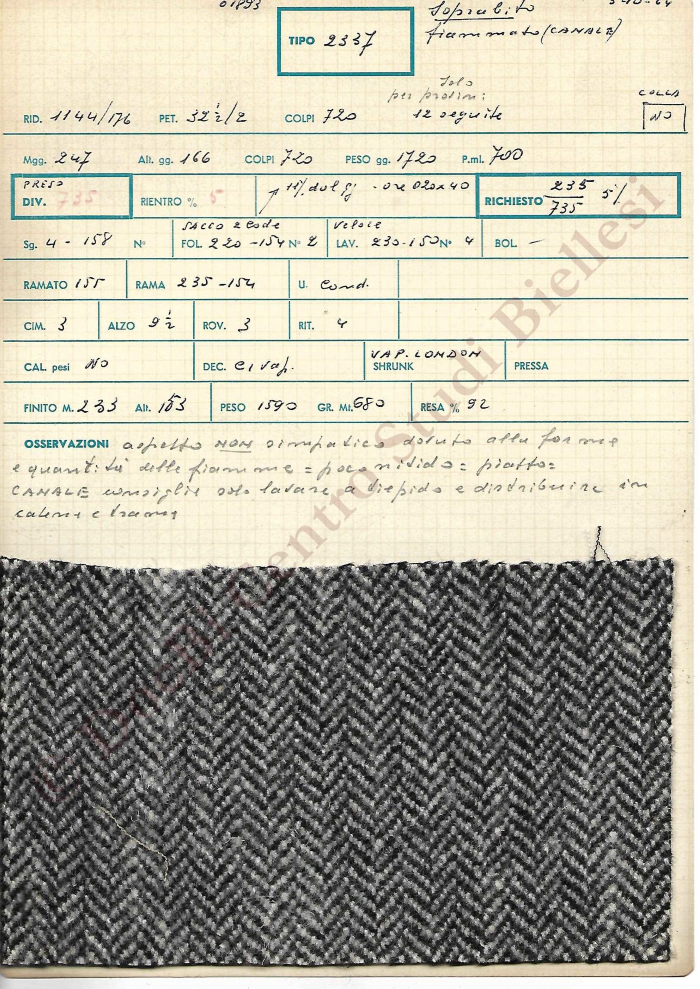 01893
Soprabito
TIPO 2337
fiammato (CANALE)
Solo
per prossimi:
12 seguite
COLLA
NO
RID. 1144/176 PET. 32 1/2 /2 COLPI 720
Mgg. 247 Alt. gg. 166 COLPI 720 PESO gg. 1720 P.ml. 700
PRESO
DIV. 735 RIENTRO % 5 11% dal gg - ore 020x40 RICHIESTO 235/735 5%
SACCO 2 Code Veloce
Sg. 4-158 N° FOL. 220-154 N° 2 LAV. 230-150 N° 4 BOL. -
RAMATO 155 RAMA 235-154 U. Cond.
CIM. 3 ALZO 9 1/2 ROV. 3 RIT. 4
VAP. LONDON
CAL. pesi NO DEC. e, vap. SHRUNK PRESSA
FINITO M. 233 Alt. 153 PESO 1590 GR. Ml. 680 RESA % 92
OSSERVAZIONI aspetto NON simpatico dovuto alla forme
e quantità delle fiamme = poco nitido = piatto =
CANALE consiglia solo lavare a tiepido e distribuire in
catena e trama
© DocBi Centro Studi Biellesi